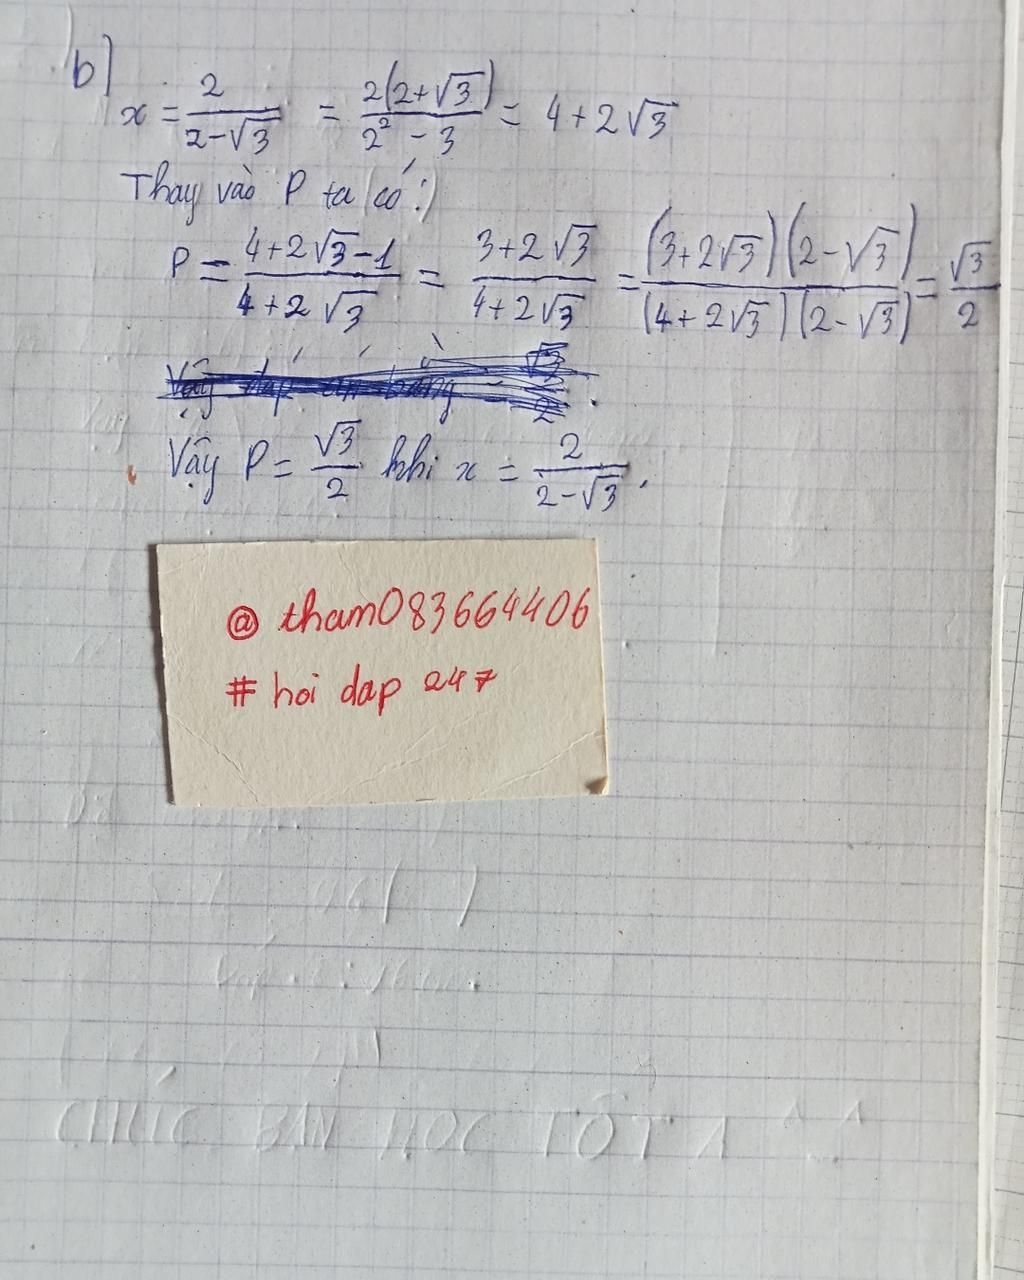 b)
x = 2/(2-√3) = 2(2+√3)/(2² - 3) = 4+2√3
Thay vào P ta có:)
P = (4+2√3-1)/(4+2√3) = (3+2√3)/(4+2√3) = (3+2√3)(2-√3)/(4+2√3)(2-√3) = √3/2
Vậy P = √3/2 khi x = 2/(2-√3).
@ tham083664406
# hoi dap 247
CHÚC BẠN HỌC TỐT Ạ ^ ^